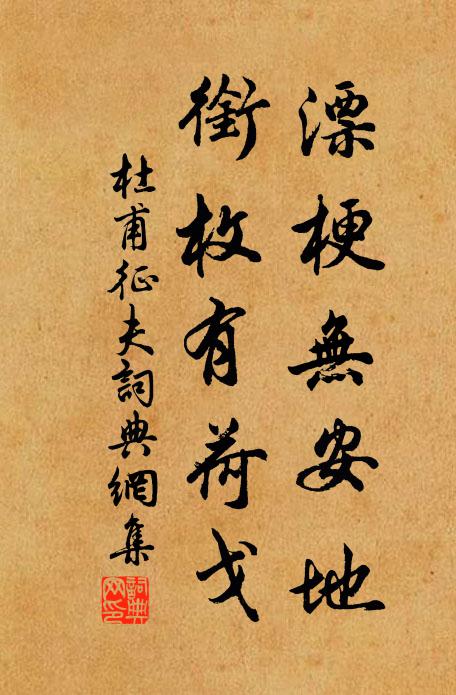 漂梗無安地
銜枚有荷戈
杜甫征夫詞典網集
詞典网印